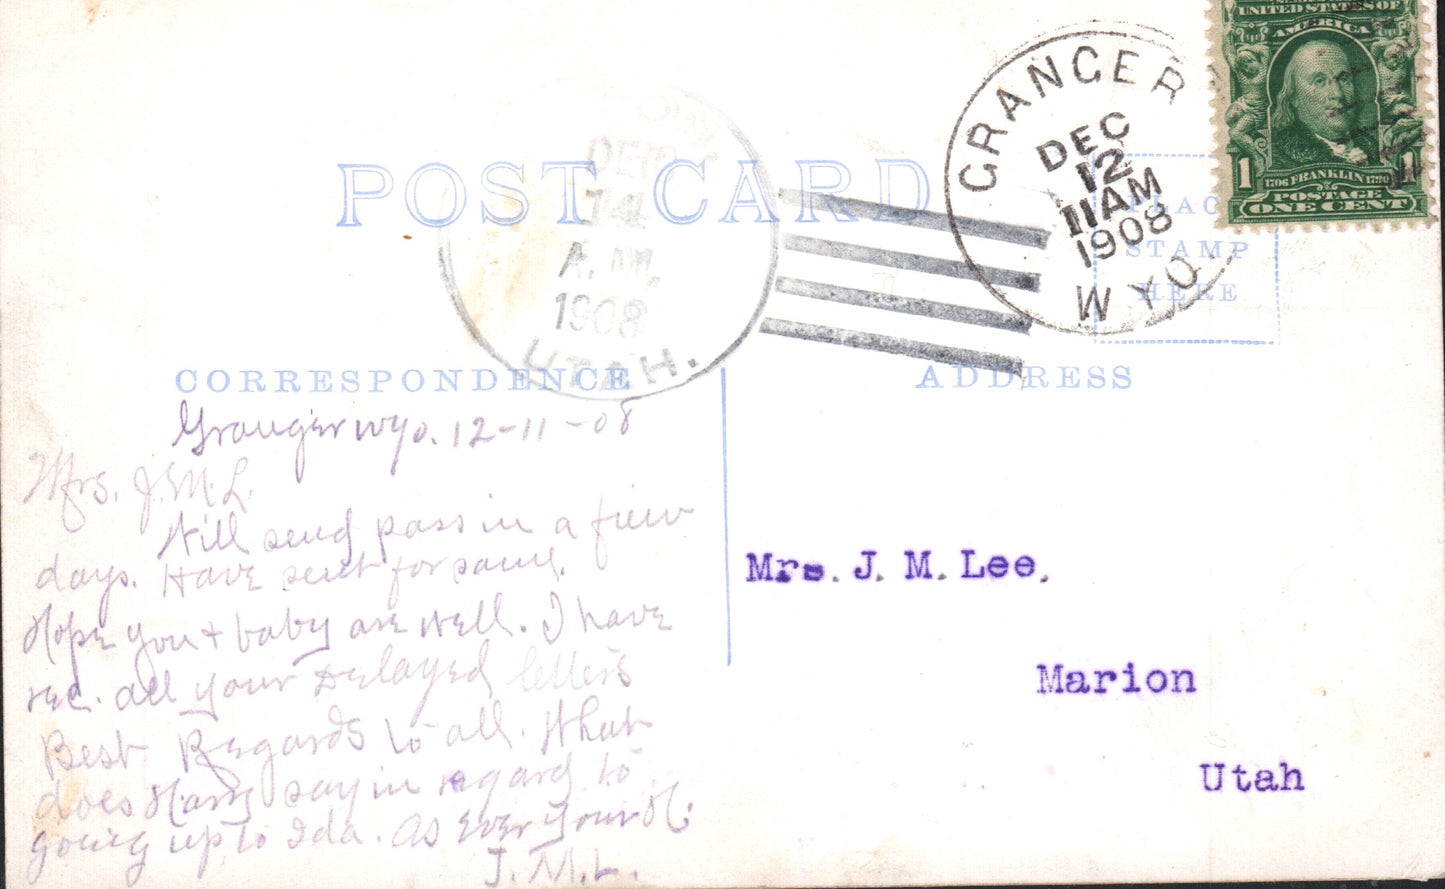 UNITED STATES OF
AMERICA
1 1
1706 FRANKLIN 1790
POSTAGE
ONE CENT
GRANGER
DEC
12
11 AM
1908
WYO
DEC
14
A.M.
1908
UTAH.
POST CARD
PLACE
STAMP
HERE
CORRESPONDENCE
ADDRESS
Granger Wyo. 12-11-08
Mrs. J.M.L.
Will send pass in a fiew
days. Have sent for same.
Hope you + baby are well. I have
rec. all your Delayed letters
Best Regards to all. What
does Harry say in regard to
going up to Ida. As Ever Your H.
J.M.L.
Mrs. J. M. Lee.
Marion
Utah